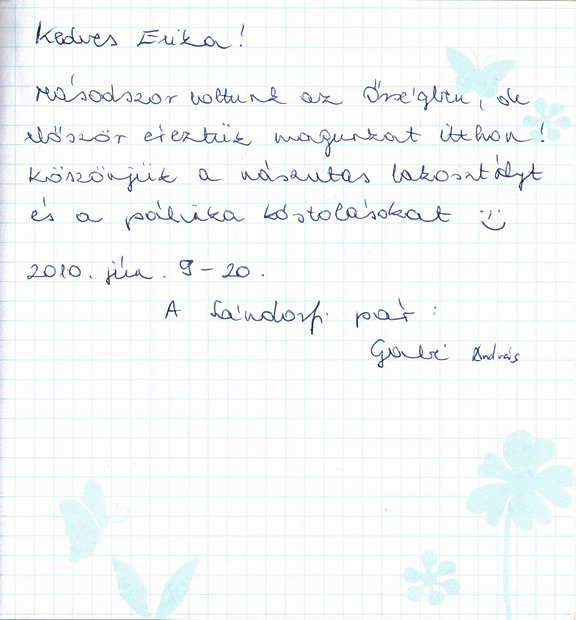 Kedves Erika!
Másodszor voltunk az Őrségben, de
először éreztük magunkat itthon!
Köszönjük a nászutas lakosztályt
és a pálinka kóstolásokat :)
2010. júla. 9-20.
A Sándorfi pár:
Gabi András